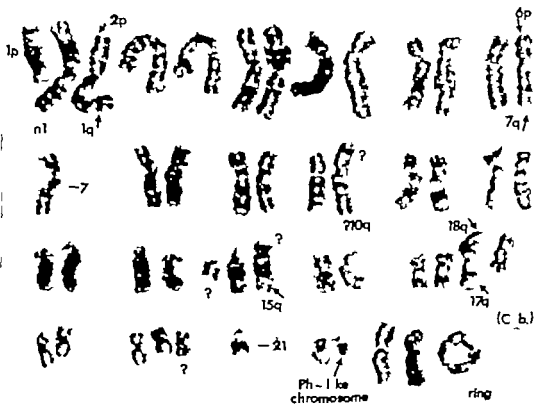 6p
2p
1p
n1
1q
7q
-7
?
?10q
18q
?
?
15q
17q
(C_b.)
?
-21
Ph-like
chromosome
ring